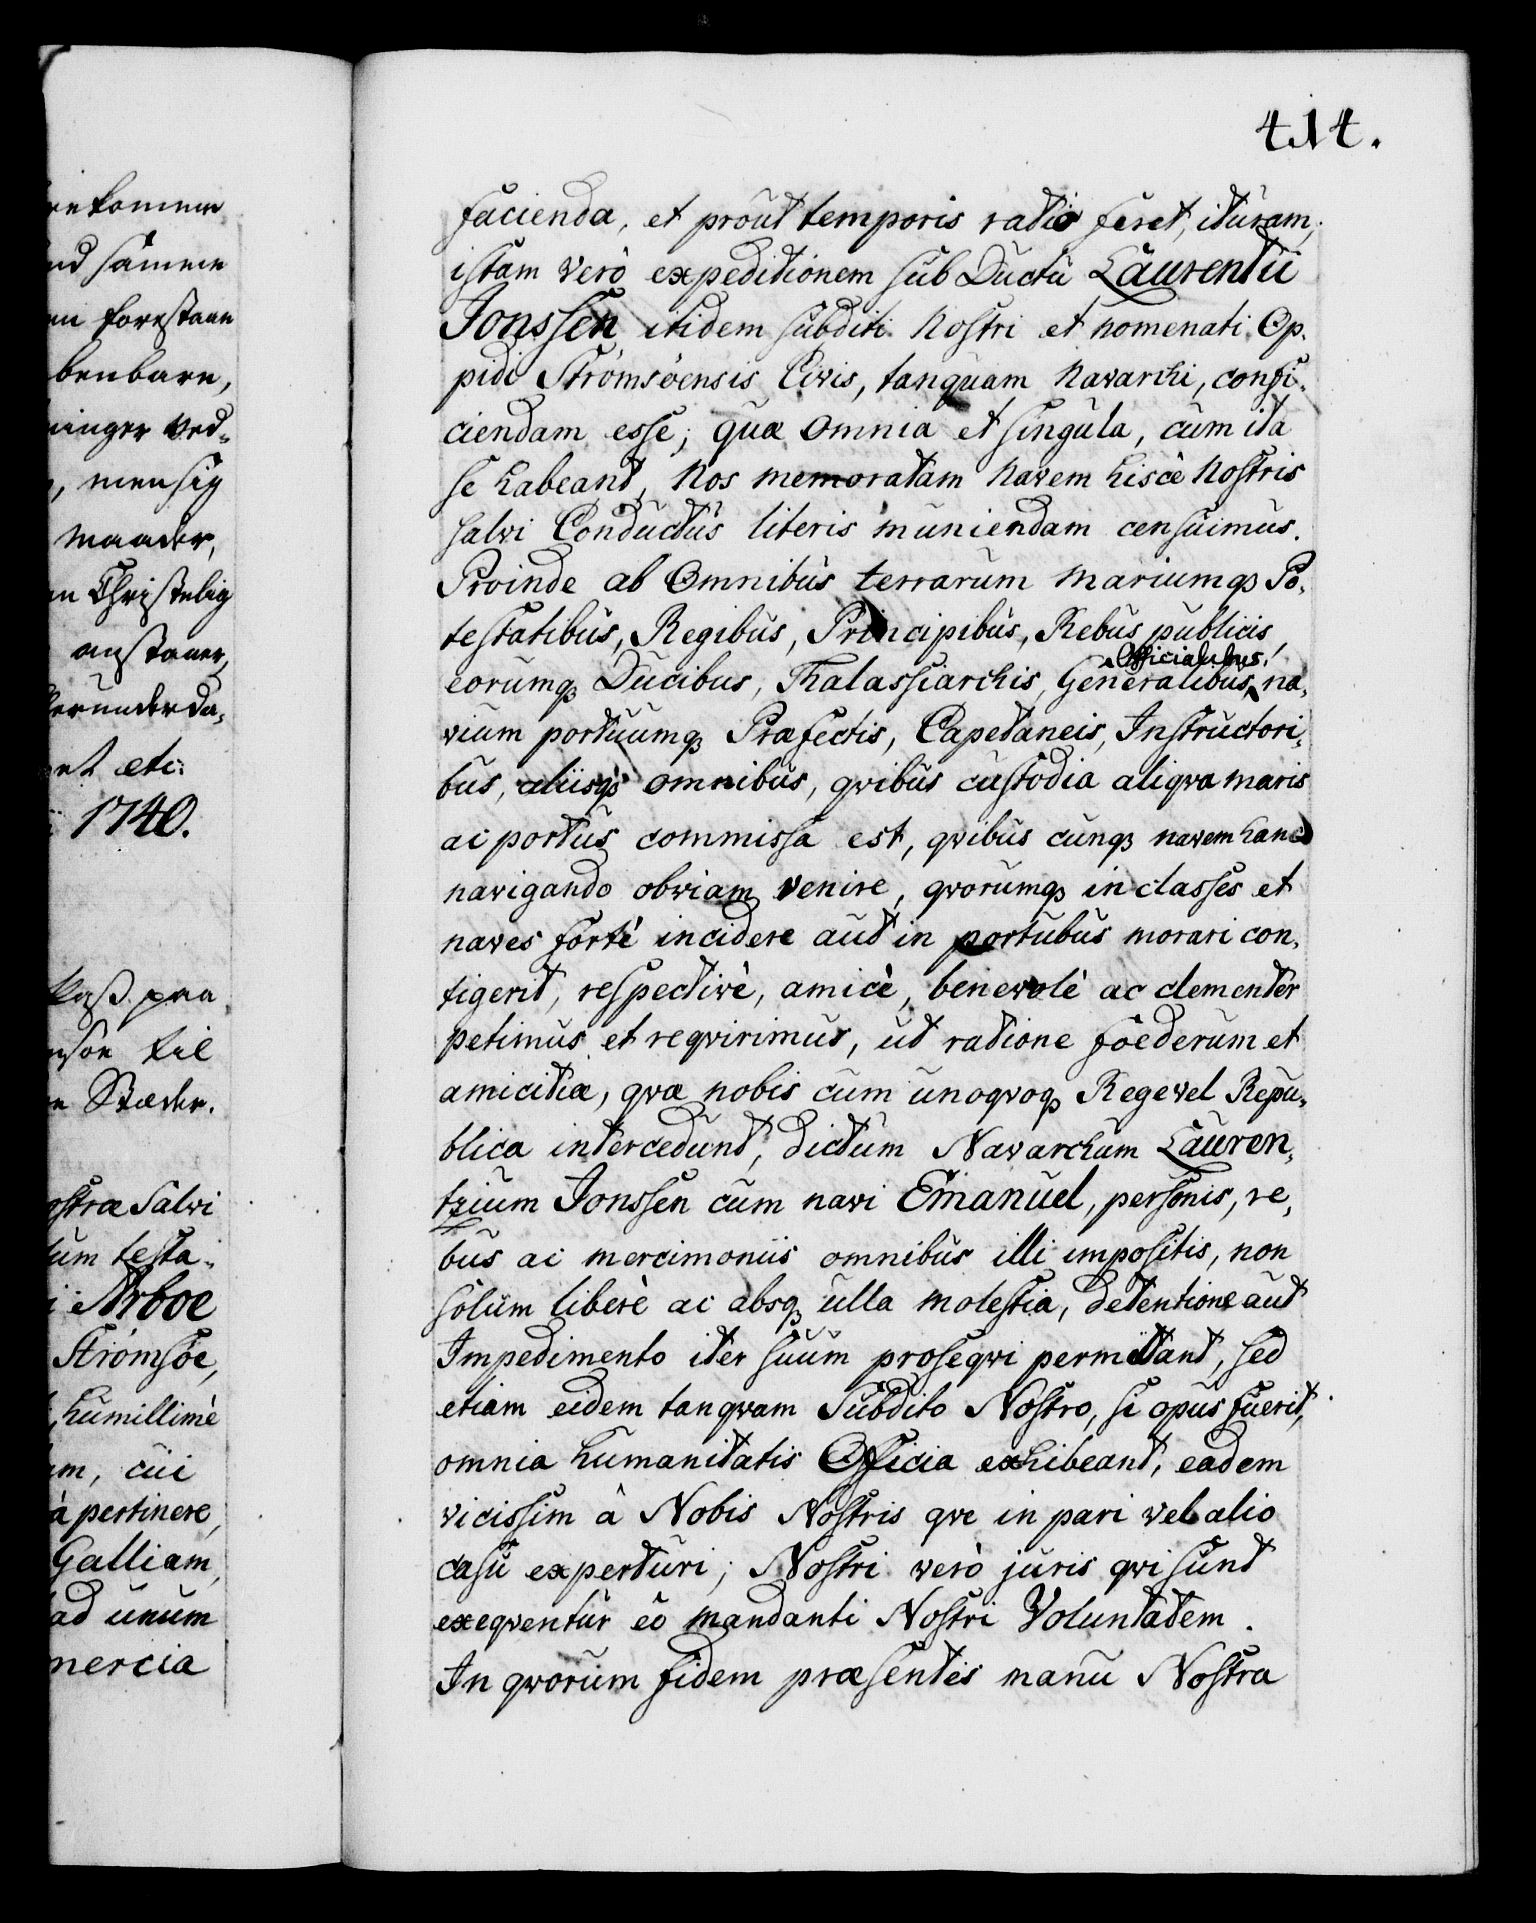 414.
facienda, et proùt temporis ratio feret, itùram,
istam verò expeditionem sub Ductù Laurentii
Jonssen itidem subditi Nostri et nomenati Op-
pidi Strömsöensis Civis, tanquam Navarchi, confi-
ciendam esse; quæ omnia et singula, cùm ita
se habeant, Nos memoratam Navem hisce Nostris
salvi Conductùs literis mùniendam censuimus.
Proinde ab Omnibùs terrarum Mariumqꝫ Po-
testatibùs, Regibus, Principibùs, Rebùs publicis
Officialibus,
eorumqꝫ Ducibus, Thalassiarchis, Generalibus, na-
vium portùumqꝫ Præfectis, Capetaneis, Instructori-
bus, aliisqꝫ omnibùs, qvibùs cùstodia aliqva maris
ac portùs commissa est, qvibùs cunqꝫ navem hanc
navigando obviam venire, qvorumqꝫ in classes et
naves fortè incidere aut in portubùs morari con-
tigerit, respectivè, amicè, benevolè ac clementer
petimus et reqvirimus, ut ratione foederum et
amicitiæ, qvæ nobis cum unoqvoqꝫ Rege vel Repu-
blica intercedunt, dictum Navarchum Lauren-
tzium Jonssen cum navi Emanuel, personis, re-
bus ac mercimoniis omnibùs illi impositis, non
solùm liberè ac absqꝫ ulla molestia, detentione aut
Impedimento iter sùum proseqvi permittant, sed
etiam eidem tanqvam Subdito Nostro, si opus fuerit,
omnia humanitatis Officia exhibeant, eadem
vicissim à Nobis Nostris qve in pari vel alio
casù experturi; Nostri verò juris qvi sunt
exeqventùr eò mandanti Nostri Voluntatem.
In qvorum fidem præsentes manù Nostra